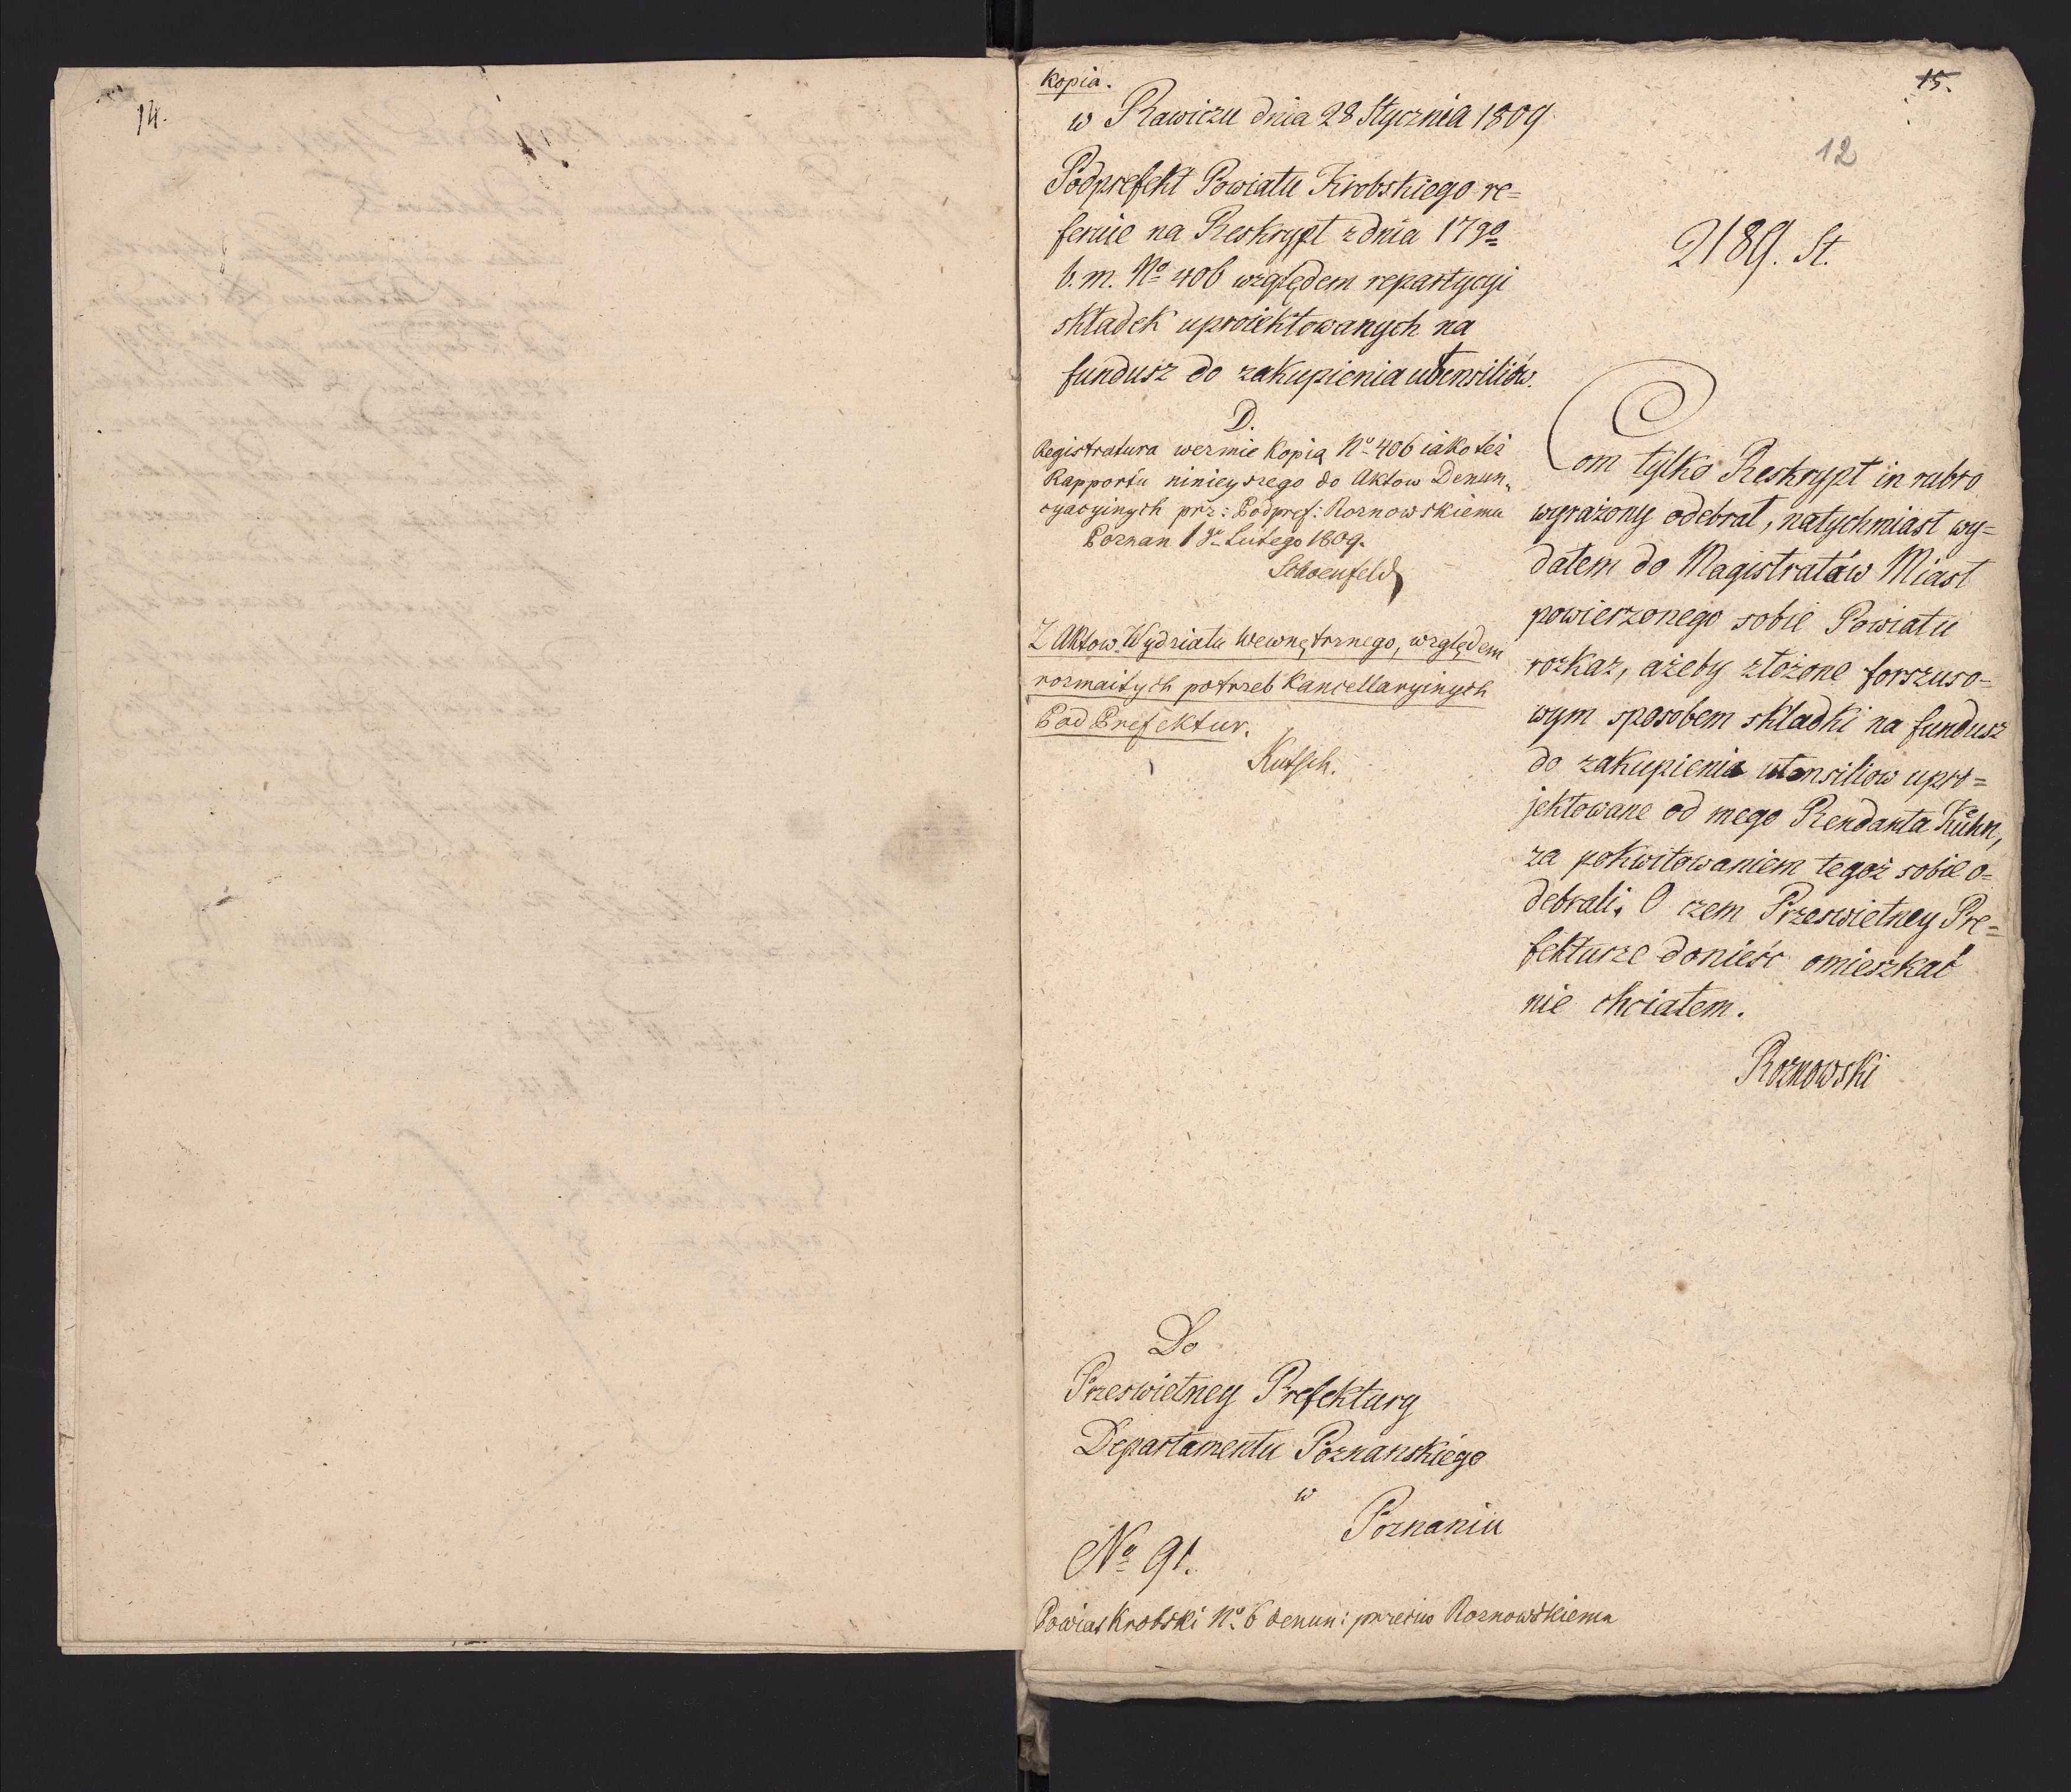 14.
Kopia.
15.
12
w Rawiczu dnia 28 Stycznia 1809
Podprefekt Powiatu Krobskiego re=
feruie na Reskrypt z dnia 17go
b. m. No 406 względem repartycyi
składek uproiektowanych na
fundusz do zakupienia utensiliów.
D.
Registratura wezmie Kopią No 406 iako też
Rapportu ninieyszego do Aktow Denun„
cyacyinych prz: Podpref: Roznowskiemu
Poznan 1 go Lutego 1809.
Schoenfeld
Z Aktow Wydziału Wewnętrznego, względem
rozmaitych potrzeb Kancellaryinych
Pod Prefektur.
Kutsch.
2189. St.
Com tylko Reskrypt in rubro
wyrażony odebrał, natychmiast wy=
dałem do Magistratów Miast
powierzonego sobie Powiatu
rozkaz, ażeby złożone forszuso=
wym sposobem składki na fundusz
do zakupienia utensiliow upro=
jektowane od mego Rendanta Kühn,
za pokwitowaniem tegoż sobie o=
debrali. O czem Przeswietney Pre=
fekturze donieść omieszkać
nie chciałem.
Roznowski
Do
Przeswietney Prefektury
Departamentu Poznanskiego
w
Poznaniu
No 91.
Powiat Krobski No 6 denun: przeciw Roznowskiemu